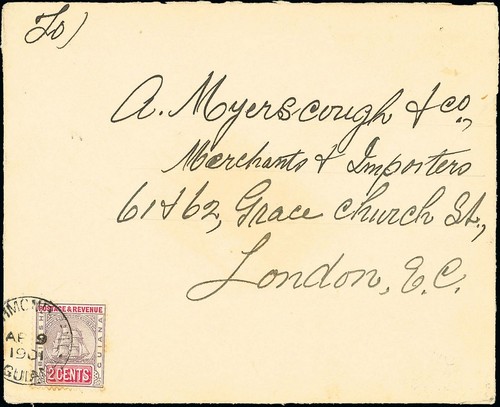 To)
A. Myerscough & co.,
Merchants & Importers
61 & 62, Grace Church St.,
London, E.C.
POSTAGE & REVENUE
BRITISH
GUIANA
2 CENTS
AP 9
1901